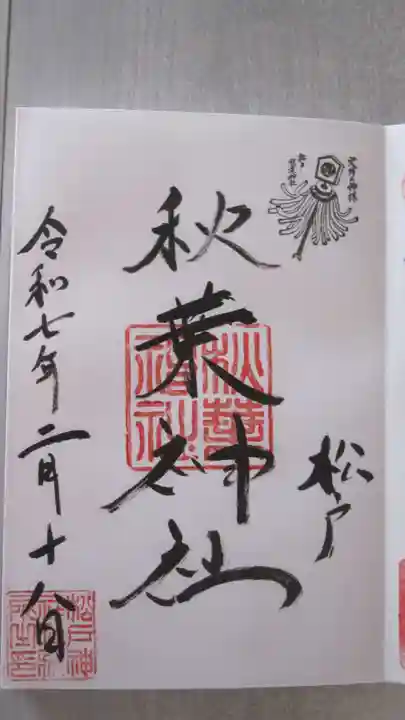 松戸
秋葉神社
秋葉神社
令和七年二月十八日
松戸神